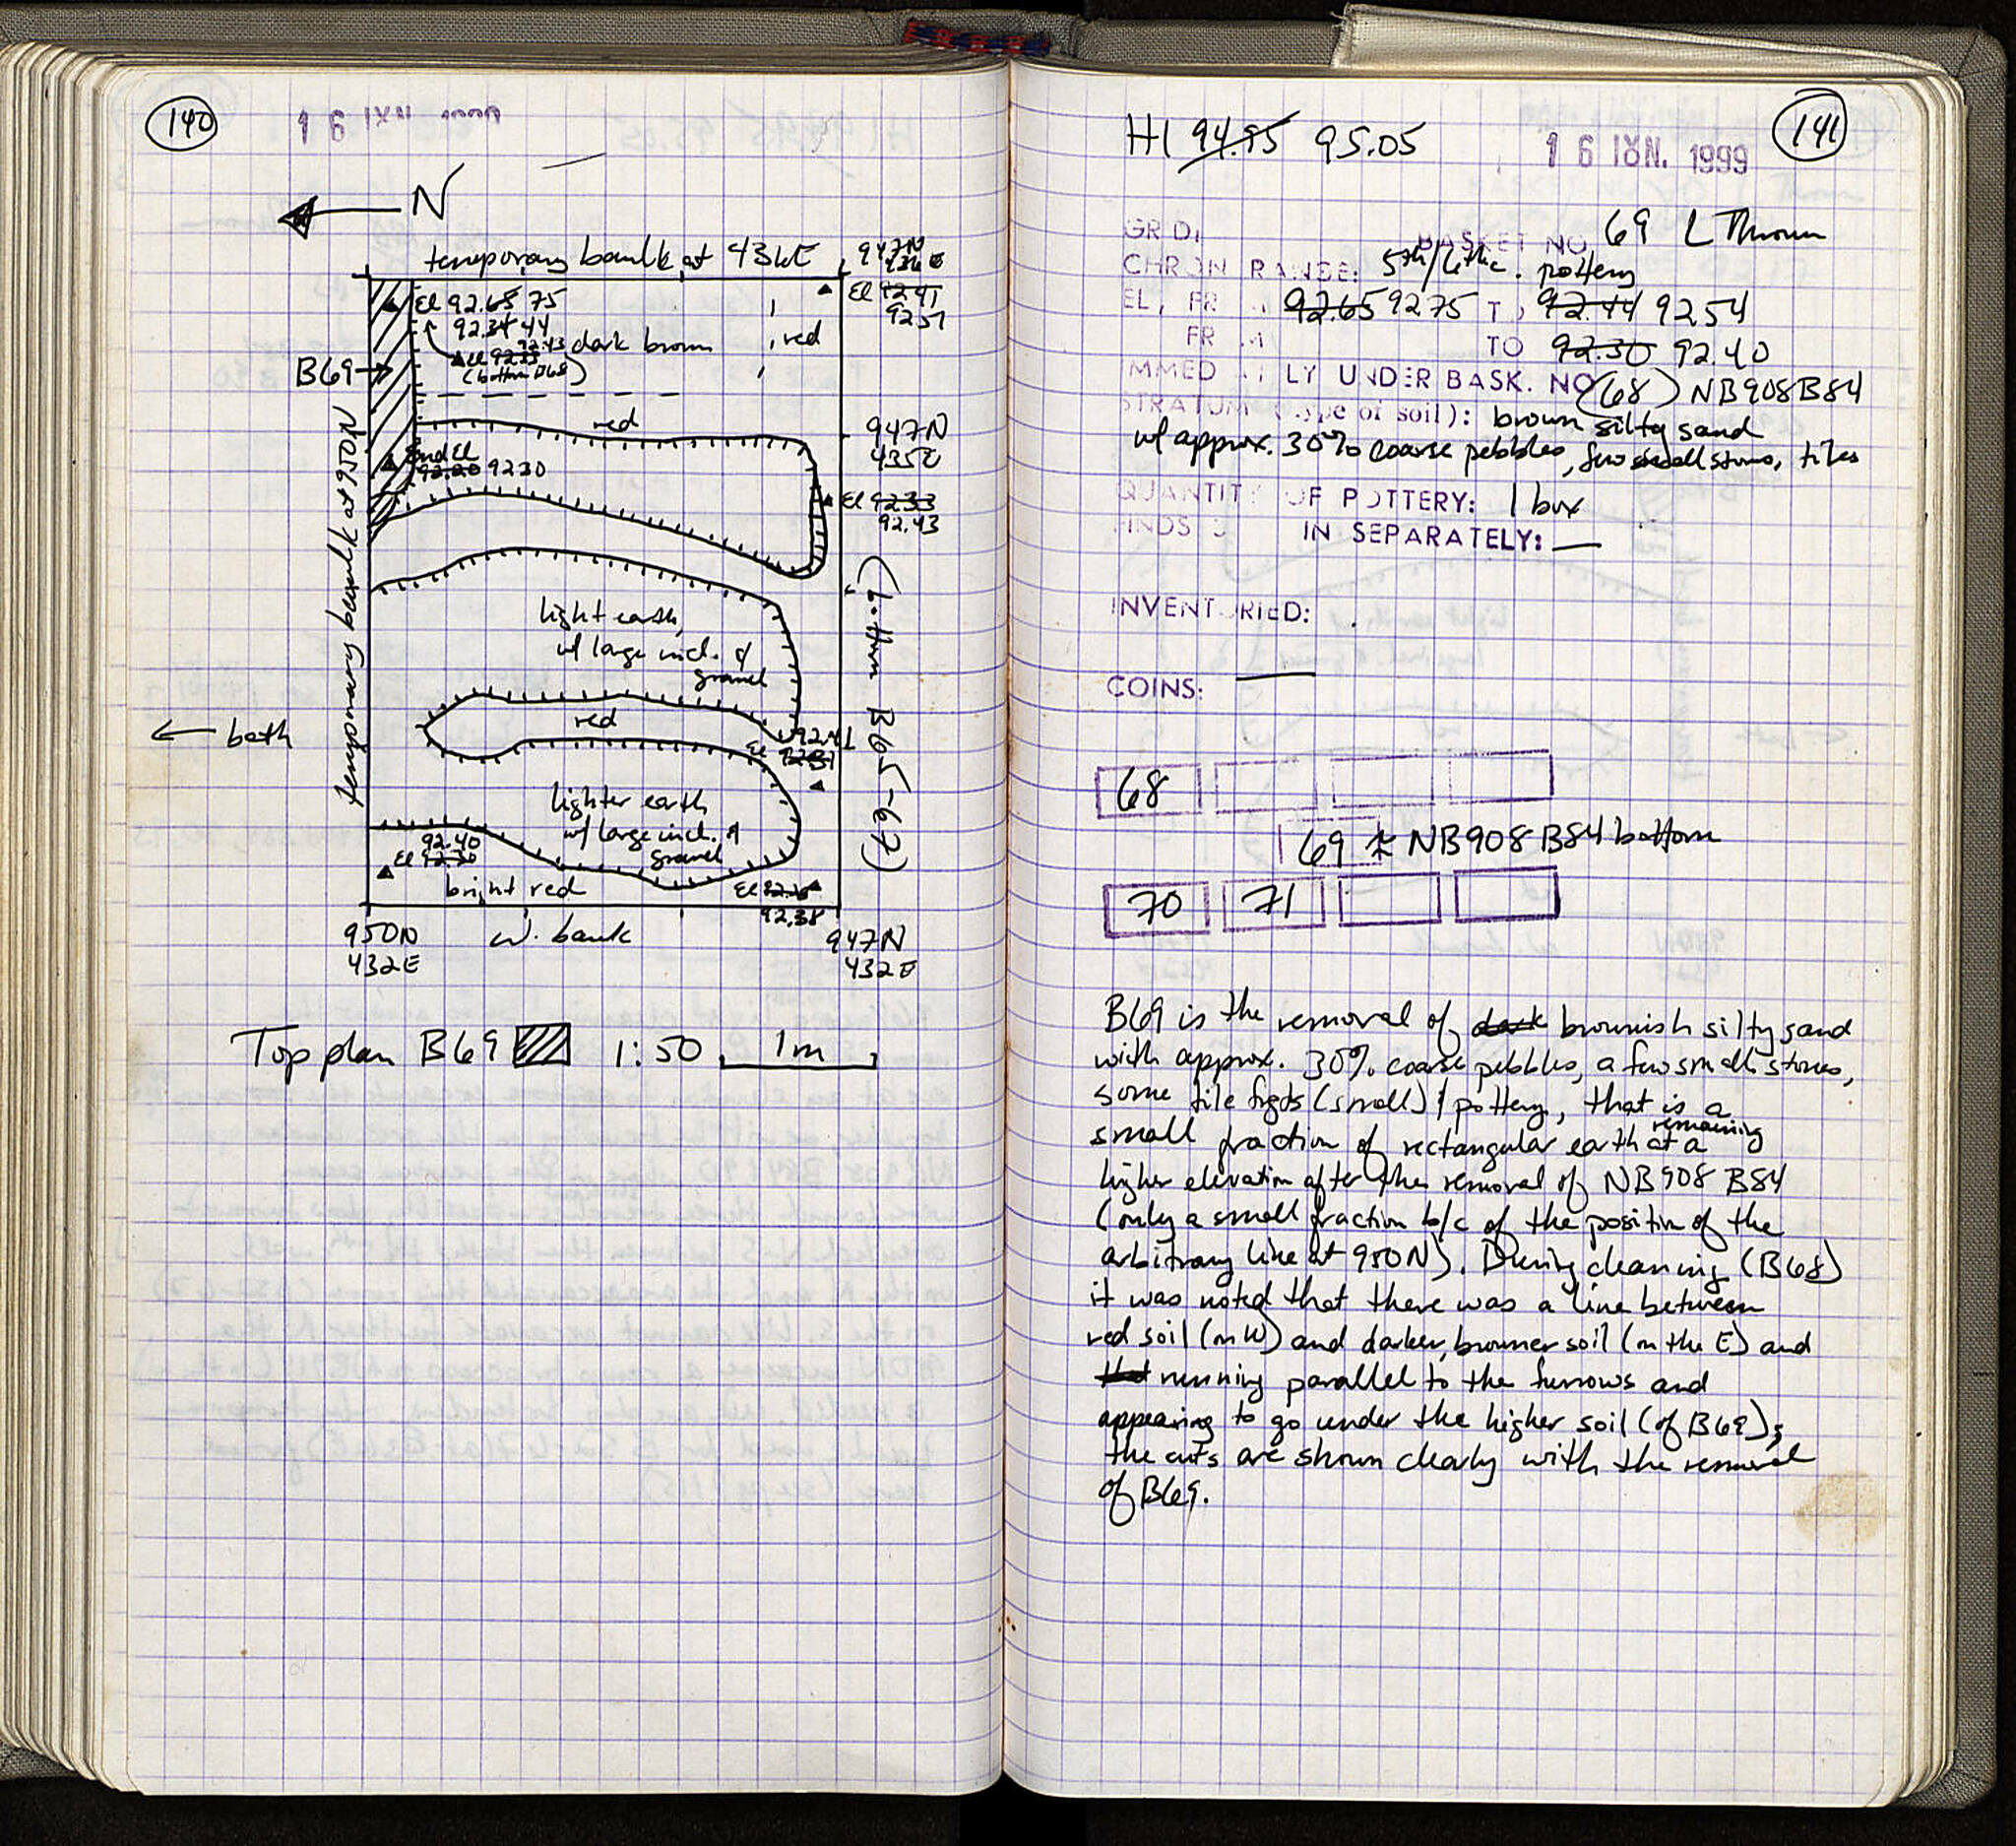 140
16 IXN 1999
N
temporary baulk at 436E
947N
436E
El 92.65 75
92.34 44
El 92.33 92.43
(bottom B68)
dark brown
red
El 92.47
92.57
B69
red
947N
435E
End El
92.20 92.30
El 92.33
92.43
temporary baulk at 950N
(bottom B65-67)
light earth,
w/ large incl. of
gravel
← bath
red
El 92.31
92.41
lighter earth
w/ large incl. of
gravel
92.40
El 92.30
bright red
El
92.38
950N
432E
w. baulk
947N
432E
Top plan B69 1:50 1m
141
HI 94.95 95.05
16 IXN. 1999
GRID:
BASKET NO. 69 L Thrown
CHRON RANGE: 5th/6thc. pottery
EL, FROM 92.65 92.75 TO 92.44 92.54
FROM TO 92.30 92.40
IMMEDIATELY UNDER BASK. NO (68) NB908B84
STRATUM (type of soil): brown silty sand
w/ approx. 30% coarse pebbles, few small stones, tiles
QUANTITY OF POTTERY: 1 box
FINDS IN SEPARATELY: —
INVENTORIED:
COINS: —
68
69 NB908 B84 bottom
70 71
B69 is the removal of dark brownish silty sand
with approx. 30% coarse pebbles, a few small stones,
some tile frgts (small) / pottery, that is a
small fraction of rectangular earth remaining at a
higher elevation after the removal of NB908 B84
(only a small fraction b/c of the position of the
arbitrary line at 950N). During cleaning (B68)
it was noted that there was a line between
red soil (on W) and darker, browner soil (on the E) and
that running parallel to the furrows and
appearing to go under the higher soil (of B69);
the cuts are shown clearly with the removal
of B69.